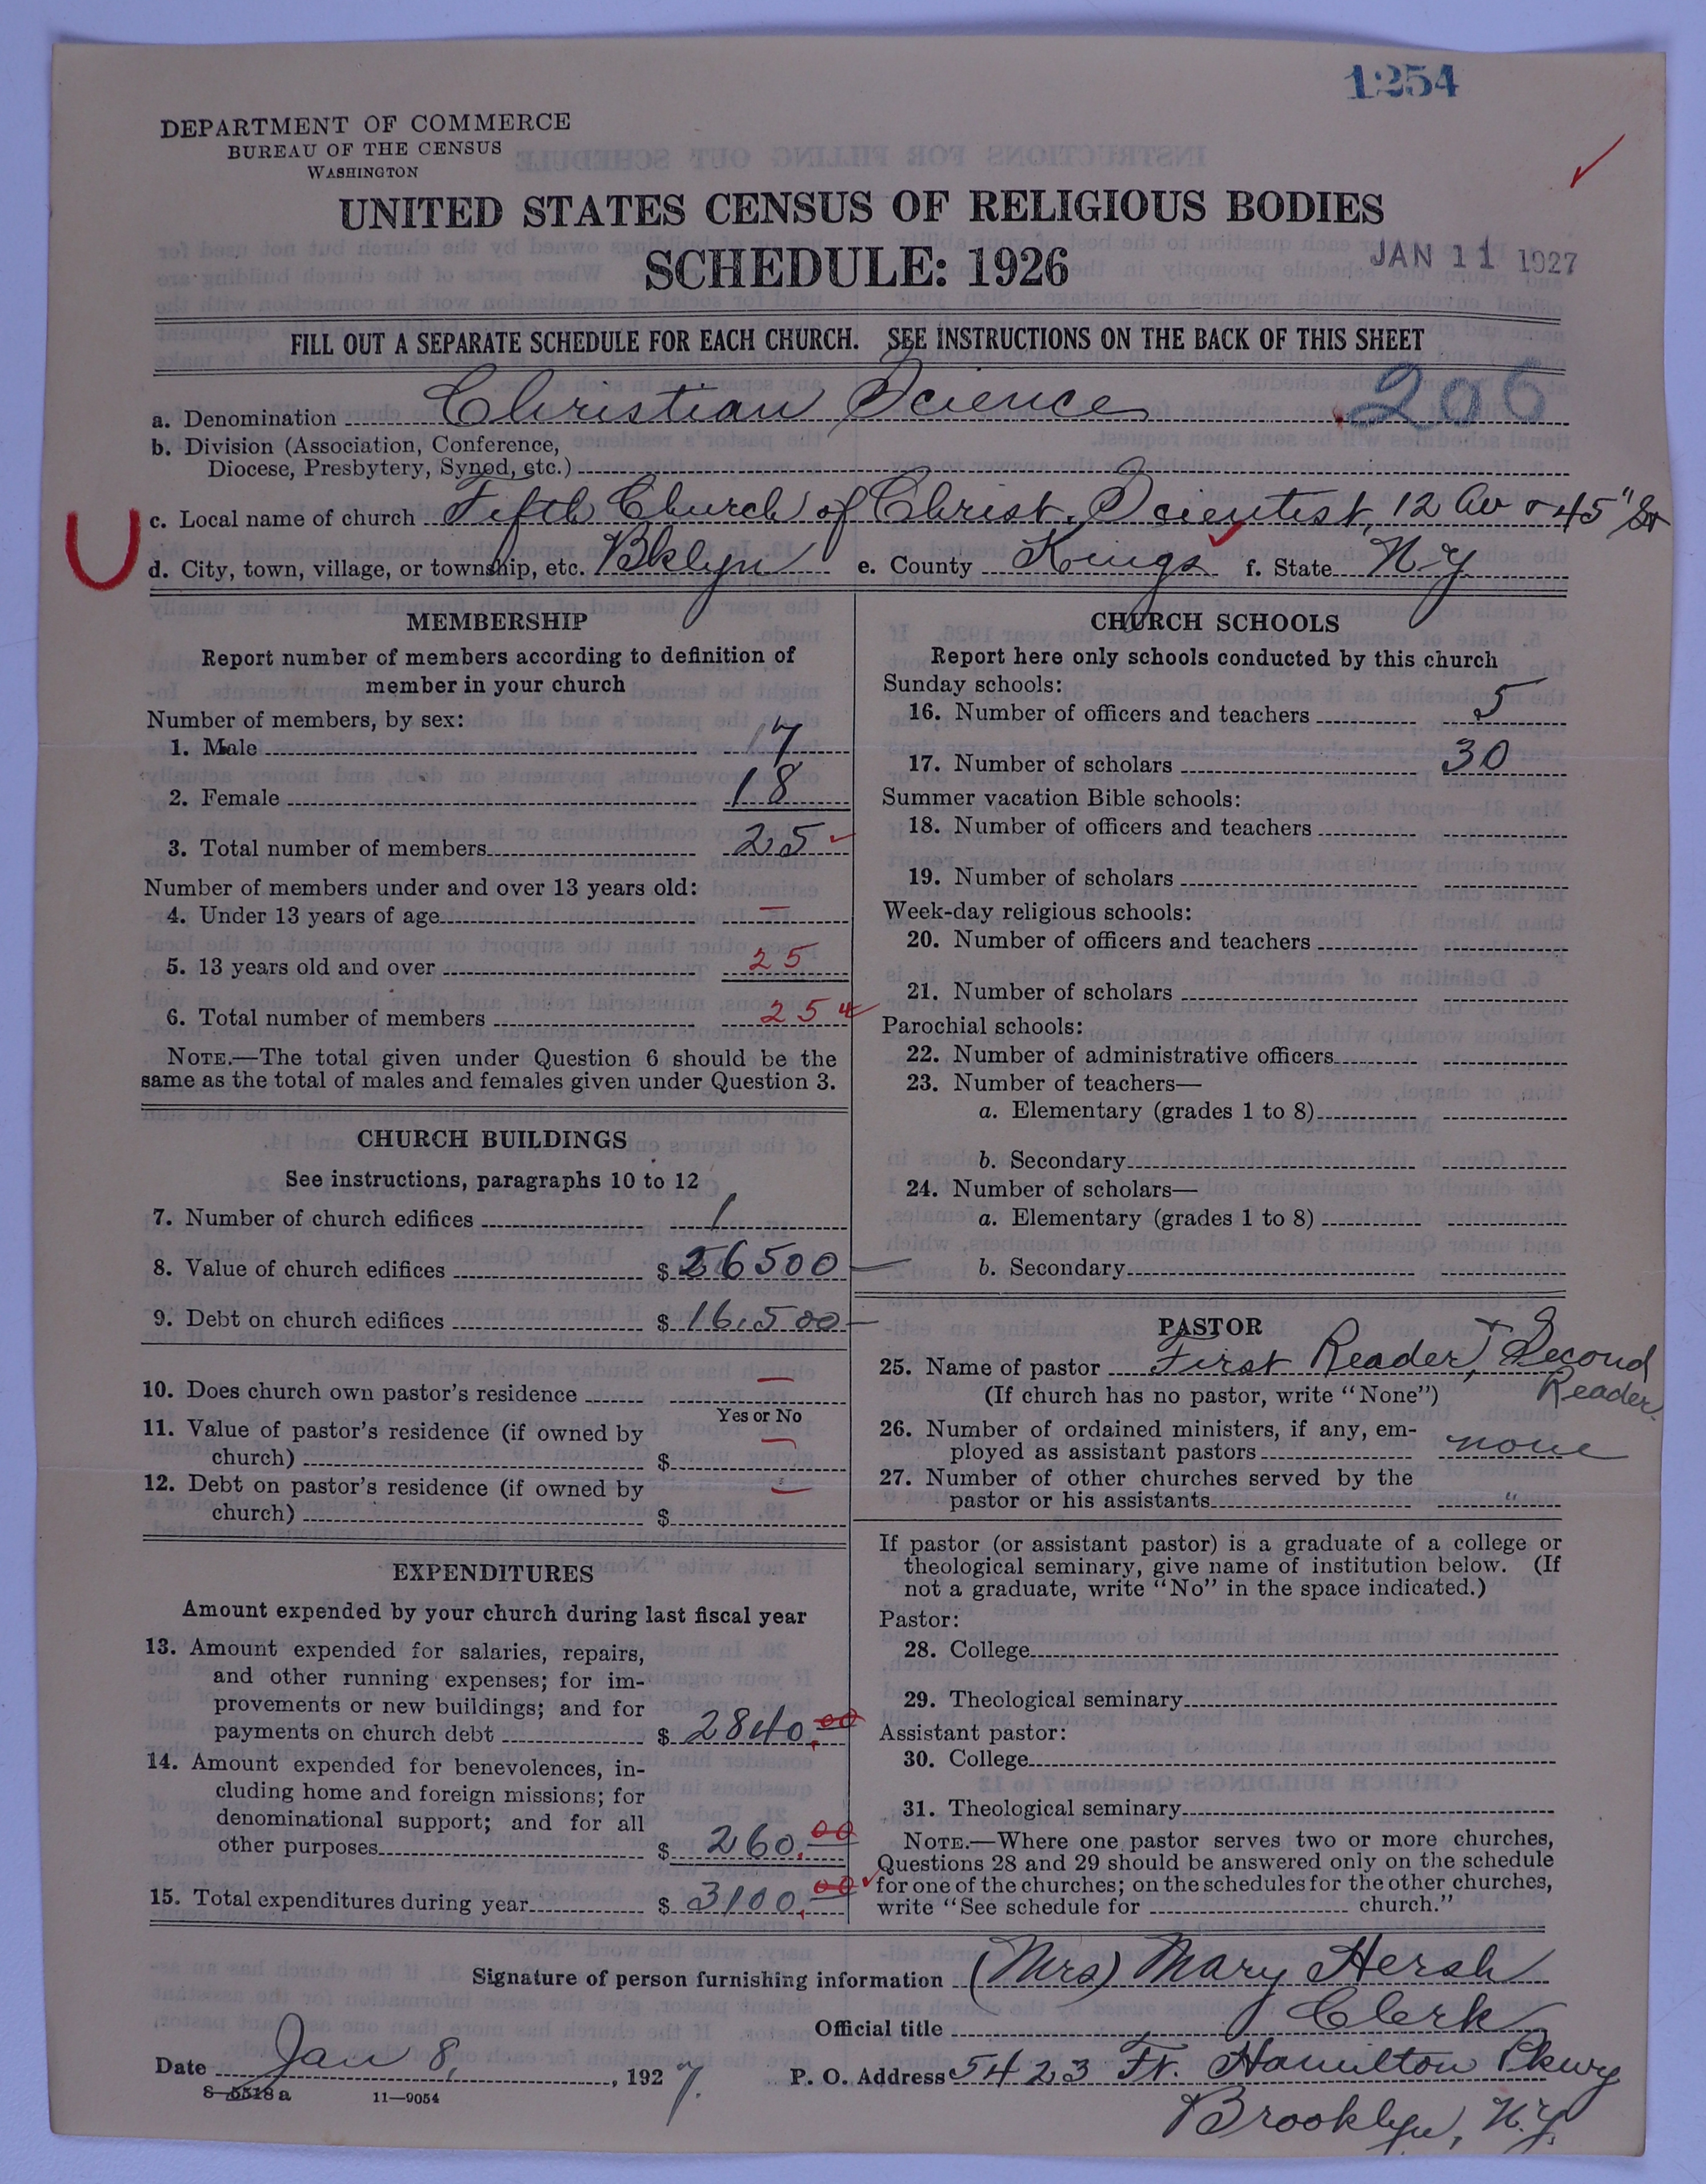 1254
DEPARTMENT OF COMMERCE
BUREAU OF THE CENSUS
WASHINGTON
UNITED STATES CENSUS OF RELIGIOUS BODIES
SCHEDULE: 1926
JAN 11 1927
FILL OUT A SEPARATE SCHEDULE FOR EACH CHURCH. SEE INSTRUCTIONS ON THE BACK OF THIS SHEET
a. Denomination Christian Science 206
b. Division (Association, Conference,
Diocese, Presbytery, Synod, etc.)
c. Local name of church Fifth Church of Christ, Scientist, 12 Av & 45" St
d. City, town, village, or township, etc. Bklyn e. County Kings f. State N.Y.
MEMBERSHIP
Report number of members according to definition of
member in your church
Number of members, by sex:
1. Male 7
2. Female 18
3. Total number of members 25
Number of members under and over 13 years old:
4. Under 13 years of age —
5. 13 years old and over 25
6. Total number of members 25
NOTE.—The total given under Question 6 should be the
same as the total of males and females given under Question 3.
CHURCH BUILDINGS
See instructions, paragraphs 10 to 12
7. Number of church edifices 1
8. Value of church edifices $ 26500
9. Debt on church edifices $ 16,500
10. Does church own pastor's residence —
Yes or No
11. Value of pastor's residence (if owned by
church) $ —
12. Debt on pastor's residence (if owned by
church) $ —
EXPENDITURES
Amount expended by your church during last fiscal year
13. Amount expended for salaries, repairs,
and other running expenses; for im-
provements or new buildings; and for
payments on church debt $ 2840.00
14. Amount expended for benevolences, in-
cluding home and foreign missions; for
denominational support; and for all
other purposes $ 260.00
15. Total expenditures during year $ 3100.00
CHURCH SCHOOLS
Report here only schools conducted by this church
Sunday schools:
16. Number of officers and teachers 5
17. Number of scholars 30
Summer vacation Bible schools:
18. Number of officers and teachers
19. Number of scholars
Week-day religious schools:
20. Number of officers and teachers
21. Number of scholars
Parochial schools:
22. Number of administrative officers
23. Number of teachers—
a. Elementary (grades 1 to 8)
b. Secondary
24. Number of scholars—
a. Elementary (grades 1 to 8)
b. Secondary
PASTOR
25. Name of pastor First Reader, & Second
Reader.
(If church has no pastor, write "None")
26. Number of ordained ministers, if any, em-
ployed as assistant pastors none
27. Number of other churches served by the
pastor or his assistants "
If pastor (or assistant pastor) is a graduate of a college or
theological seminary, give name of institution below. (If
not a graduate, write "No" in the space indicated.)
Pastor:
28. College
29. Theological seminary
Assistant pastor:
30. College
31. Theological seminary
NOTE.—Where one pastor serves two or more churches,
Questions 28 and 29 should be answered only on the schedule
for one of the churches; on the schedules for the other churches,
write "See schedule for church."
Signature of person furnishing information (Mrs) Mary Hersh
Official title Clerk
Date Jan 8, 1927. P. O. Address 5423 Ft. Hamilton Pkwy
Brooklyn, N.Y.
8—5518a 11—9054